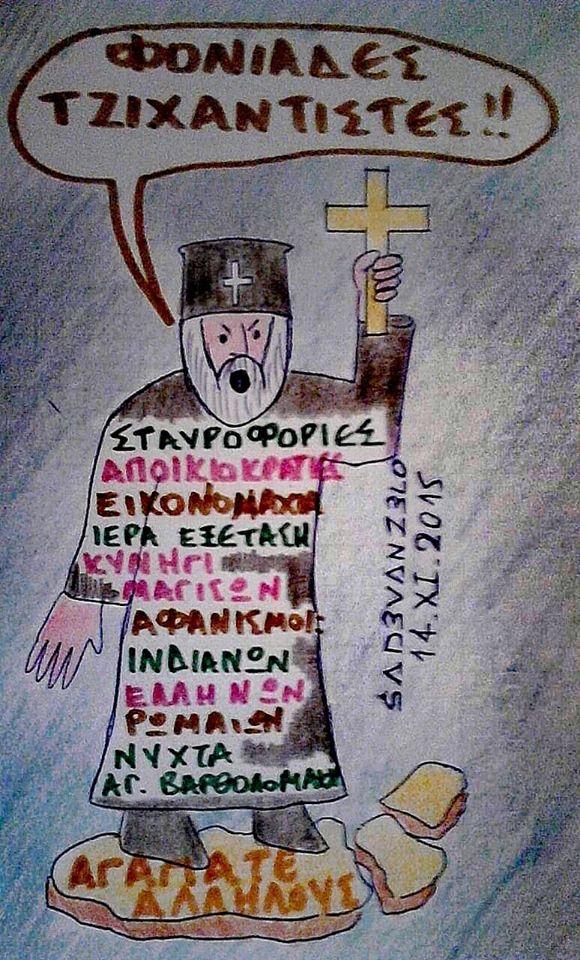 ΦΟΝΙΑΔΕΣ
ΤΖΙΧΑΝΤΙΣΤΕΣ!!
ΣΤΑΥΡΟΦΟΡΙΕΣ
ΑΠΟΙΚΙΟΚΡΑΤΙΕΣ
ΕΙΚΟΝΟΜΑΧΙΑ
ΙΕΡΑ ΕΞΕΤΑΣΗ
ΚΥΝΗΓΙ
ΜΑΓΙΣΩΝ
ΑΦΑΝΙΣΜΟΙ:
ΙΝΔΙΑΝΩΝ
ΕΛΛΗΝΩΝ
ΡΩΜΑΙΩΝ
ΝΥΧΤΑ
ΑΓ. ΒΑΡΘΟΛΟΜΑΙΟΥ
ΑΓΑΠΑΤΕ
ΑΛΛΗΛΟΥΣ
14.XI.2015